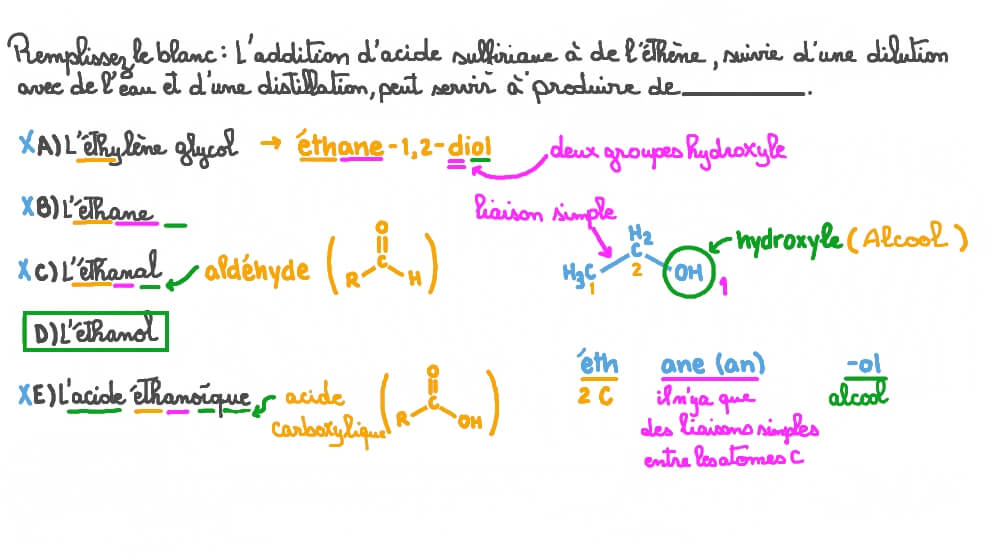 Remplissez le blanc : L'addition d'acide sulfurique à de l'éthène, suivie d'une dilution
avec de l'eau et d'une distillation, peut servir à produire de __________.
X A) L'éthylène glycol → éthane-1,2-diol
deux groupes hydroxyle
X B) L'éthane
liaison simple
X C) L'éthanal
aldéhyde
O
C
R H
H₂
C
H₃C OH
1 2 1
hydroxyle (Alcool)
D) L'éthanol
X E) L'acide éthanoïque
acide
carboxylique
O
C
R OH
éth ane (an) -ol
2 C il n'y a que alcool
des liaisons simples
entre les atomes C